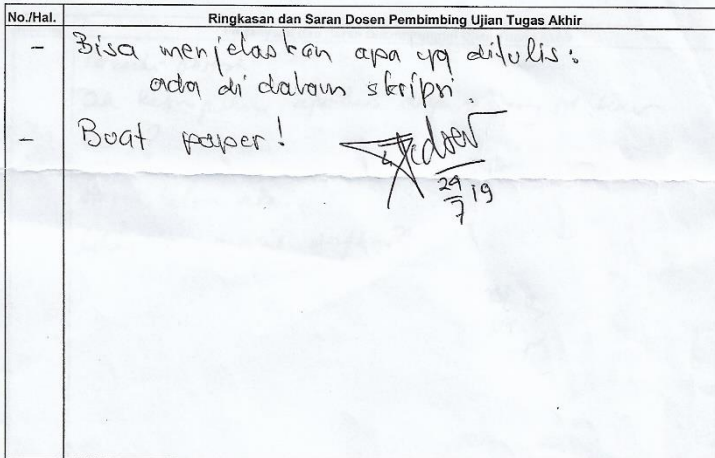 No./Hal. Ringkasan dan Saran Dosen Pembimbing Ujian Tugas Akhir
- Bisa menjelaskan apa yg ditulis :
ada di dalam skripsi.
- Buat paper!
24/7 19